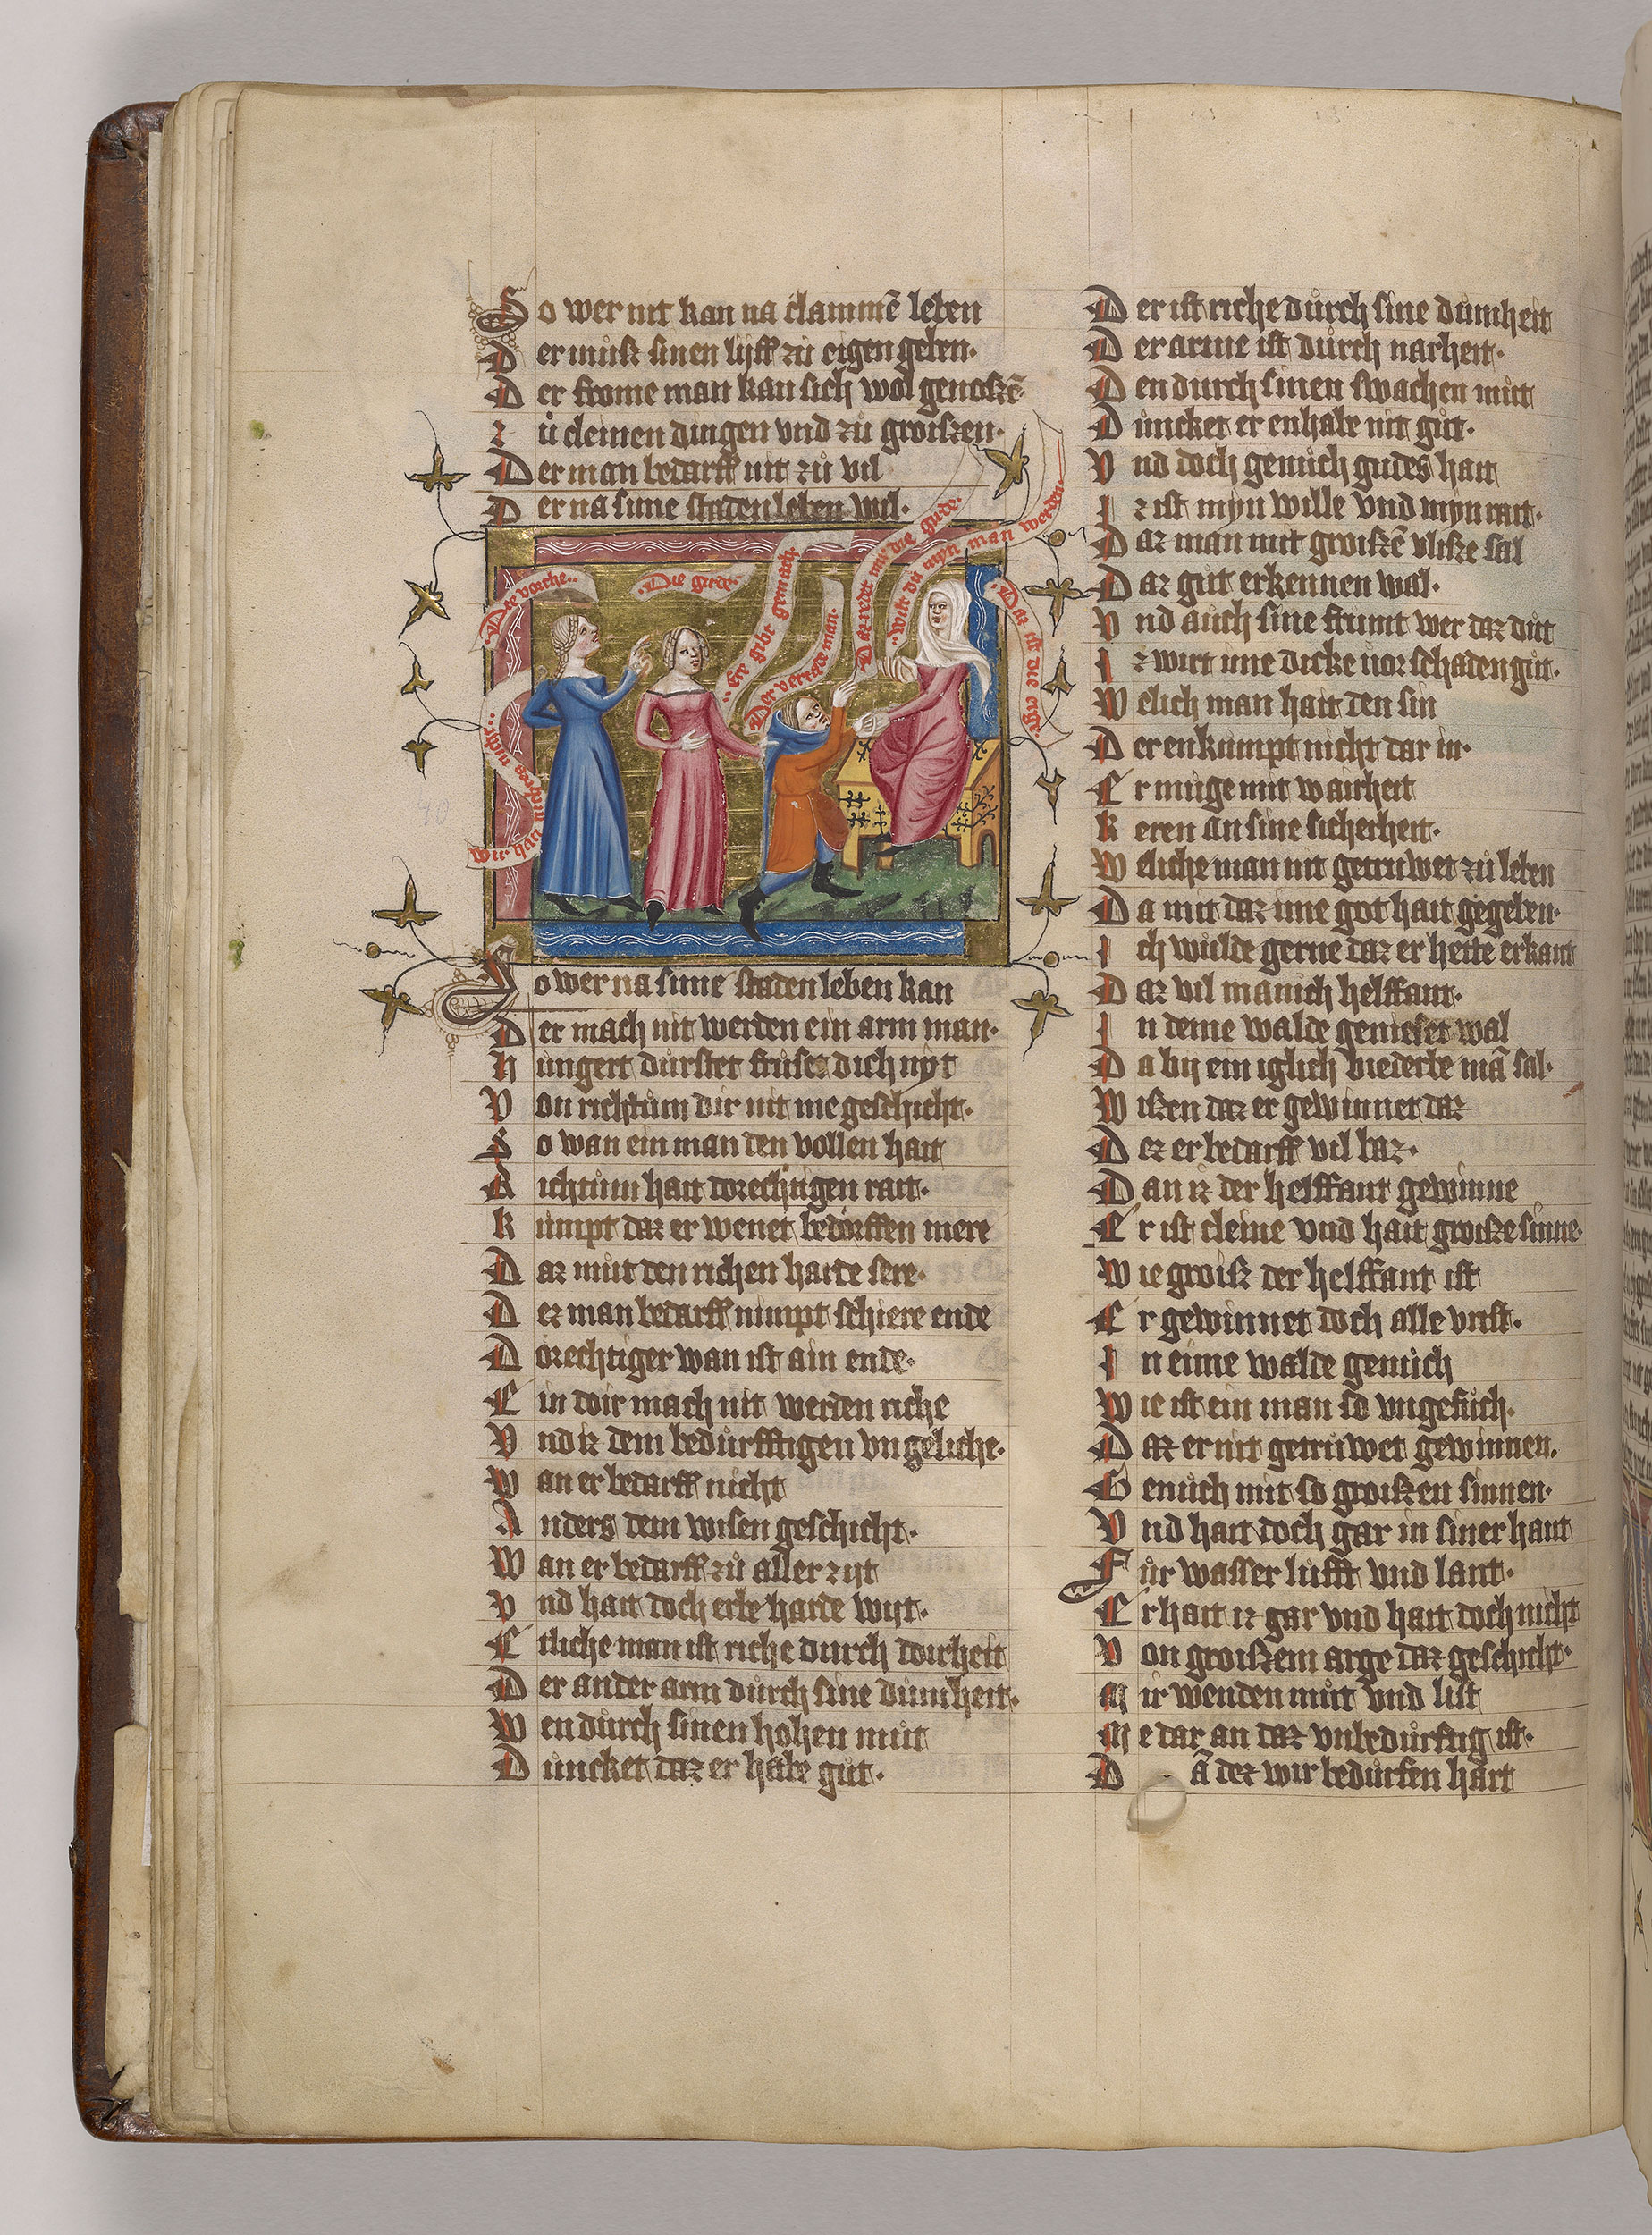 So wer nit kan na clammē leben
Der můsz sinen lijff zů eigen geben·
Der frome man kan sich wol genoszē
Zů cleinen dingen vnd zů groiszen·
Der man bedarff nit zů vil
Der na sime staden leben wil·
Die vorchte··
·Die girde·
··Ere gibt gemach·
Der verzade man·
Daz redet mir die girde·
··Wilt dů myn man werden·
·Daz ist die erge·
Wir han nichtes nicht··
So wer na sime staden leben kan
Der mach nit werden ein arm man·
Hungert důrstet frůset dich nyt
Von richtům dir nit me geschicht·
So wan ein man den vollen hait
Richtům hait dorechtigen rait·
Kumpt daz er wenet bedorffen mere
Daz můt den richen harte sere·
Dez man bedarff nimpt schiere ende
Dorechtiger wan ist ain ende·
Ein doir mach nit werden riche
Vnd iz dem bedůrfftigen vngeliche·
Wan er bedarff nicht
Anders dem wisen geschicht·
Wan er bedarff zů aller zijt
Vnd hait doch erbe harde wijt·
Etliche man ist riche durch doirheit
Der ander arm důrch sine důmheit·
Wen důrch sinen hohen můt
Důncket daz er habe gůt·
Der ist riche důrch sine důmheit
Der arme ist důrch narheit·
Den durch sinen swachen můt
Důncket er enhabe nit gůt·
Vnd doch genůch gudes hait
Iz ist myn wille vnd myn rait·
Daz man mit groiszē vlisze sal
Daz gůt erkennen wal·
Vnd aůch sine frumt wer daz důt
Iz wirt ime dicke uor schaden gůt·
Welich man hait den sin
Der enkůmpt nicht dar in·
Er můge mit wairheit
Keren an sine sicherheit·
Weliche man nit getruwet zů leben
Da mit daz ime got hait gegeben·
Ich wůlde gerne daz er hette erkant
Daz vil manich helffant·
In deme walde genieset wal
Da bij ein iglich biederbe mā sal·
Wiszen daz er gewinnet daz
Dez er bedarff vil baz·
Dan iz der helffant gewinne
Er ist cleine vnd hait groisze sinne·
Wie groisz der helffant ist
Er gewinnet doch alle vrist·
In eime walde genůch
Wie ist ein man so vngefůch·
Daz er nit getrůwet gewinnen·
Genůch mit so groiszen sinnen·
Vnd hait doch gar in siner hant
Fůr wasser lůfft vnd lant·
Er hait iz gar vnd hait doch nicht
Von groiszem arge daz geschicht·
Wir wenden můt vnd list
Me dar an daz vnbedůrftig ist·
Dā dez wir bedůrfen hart